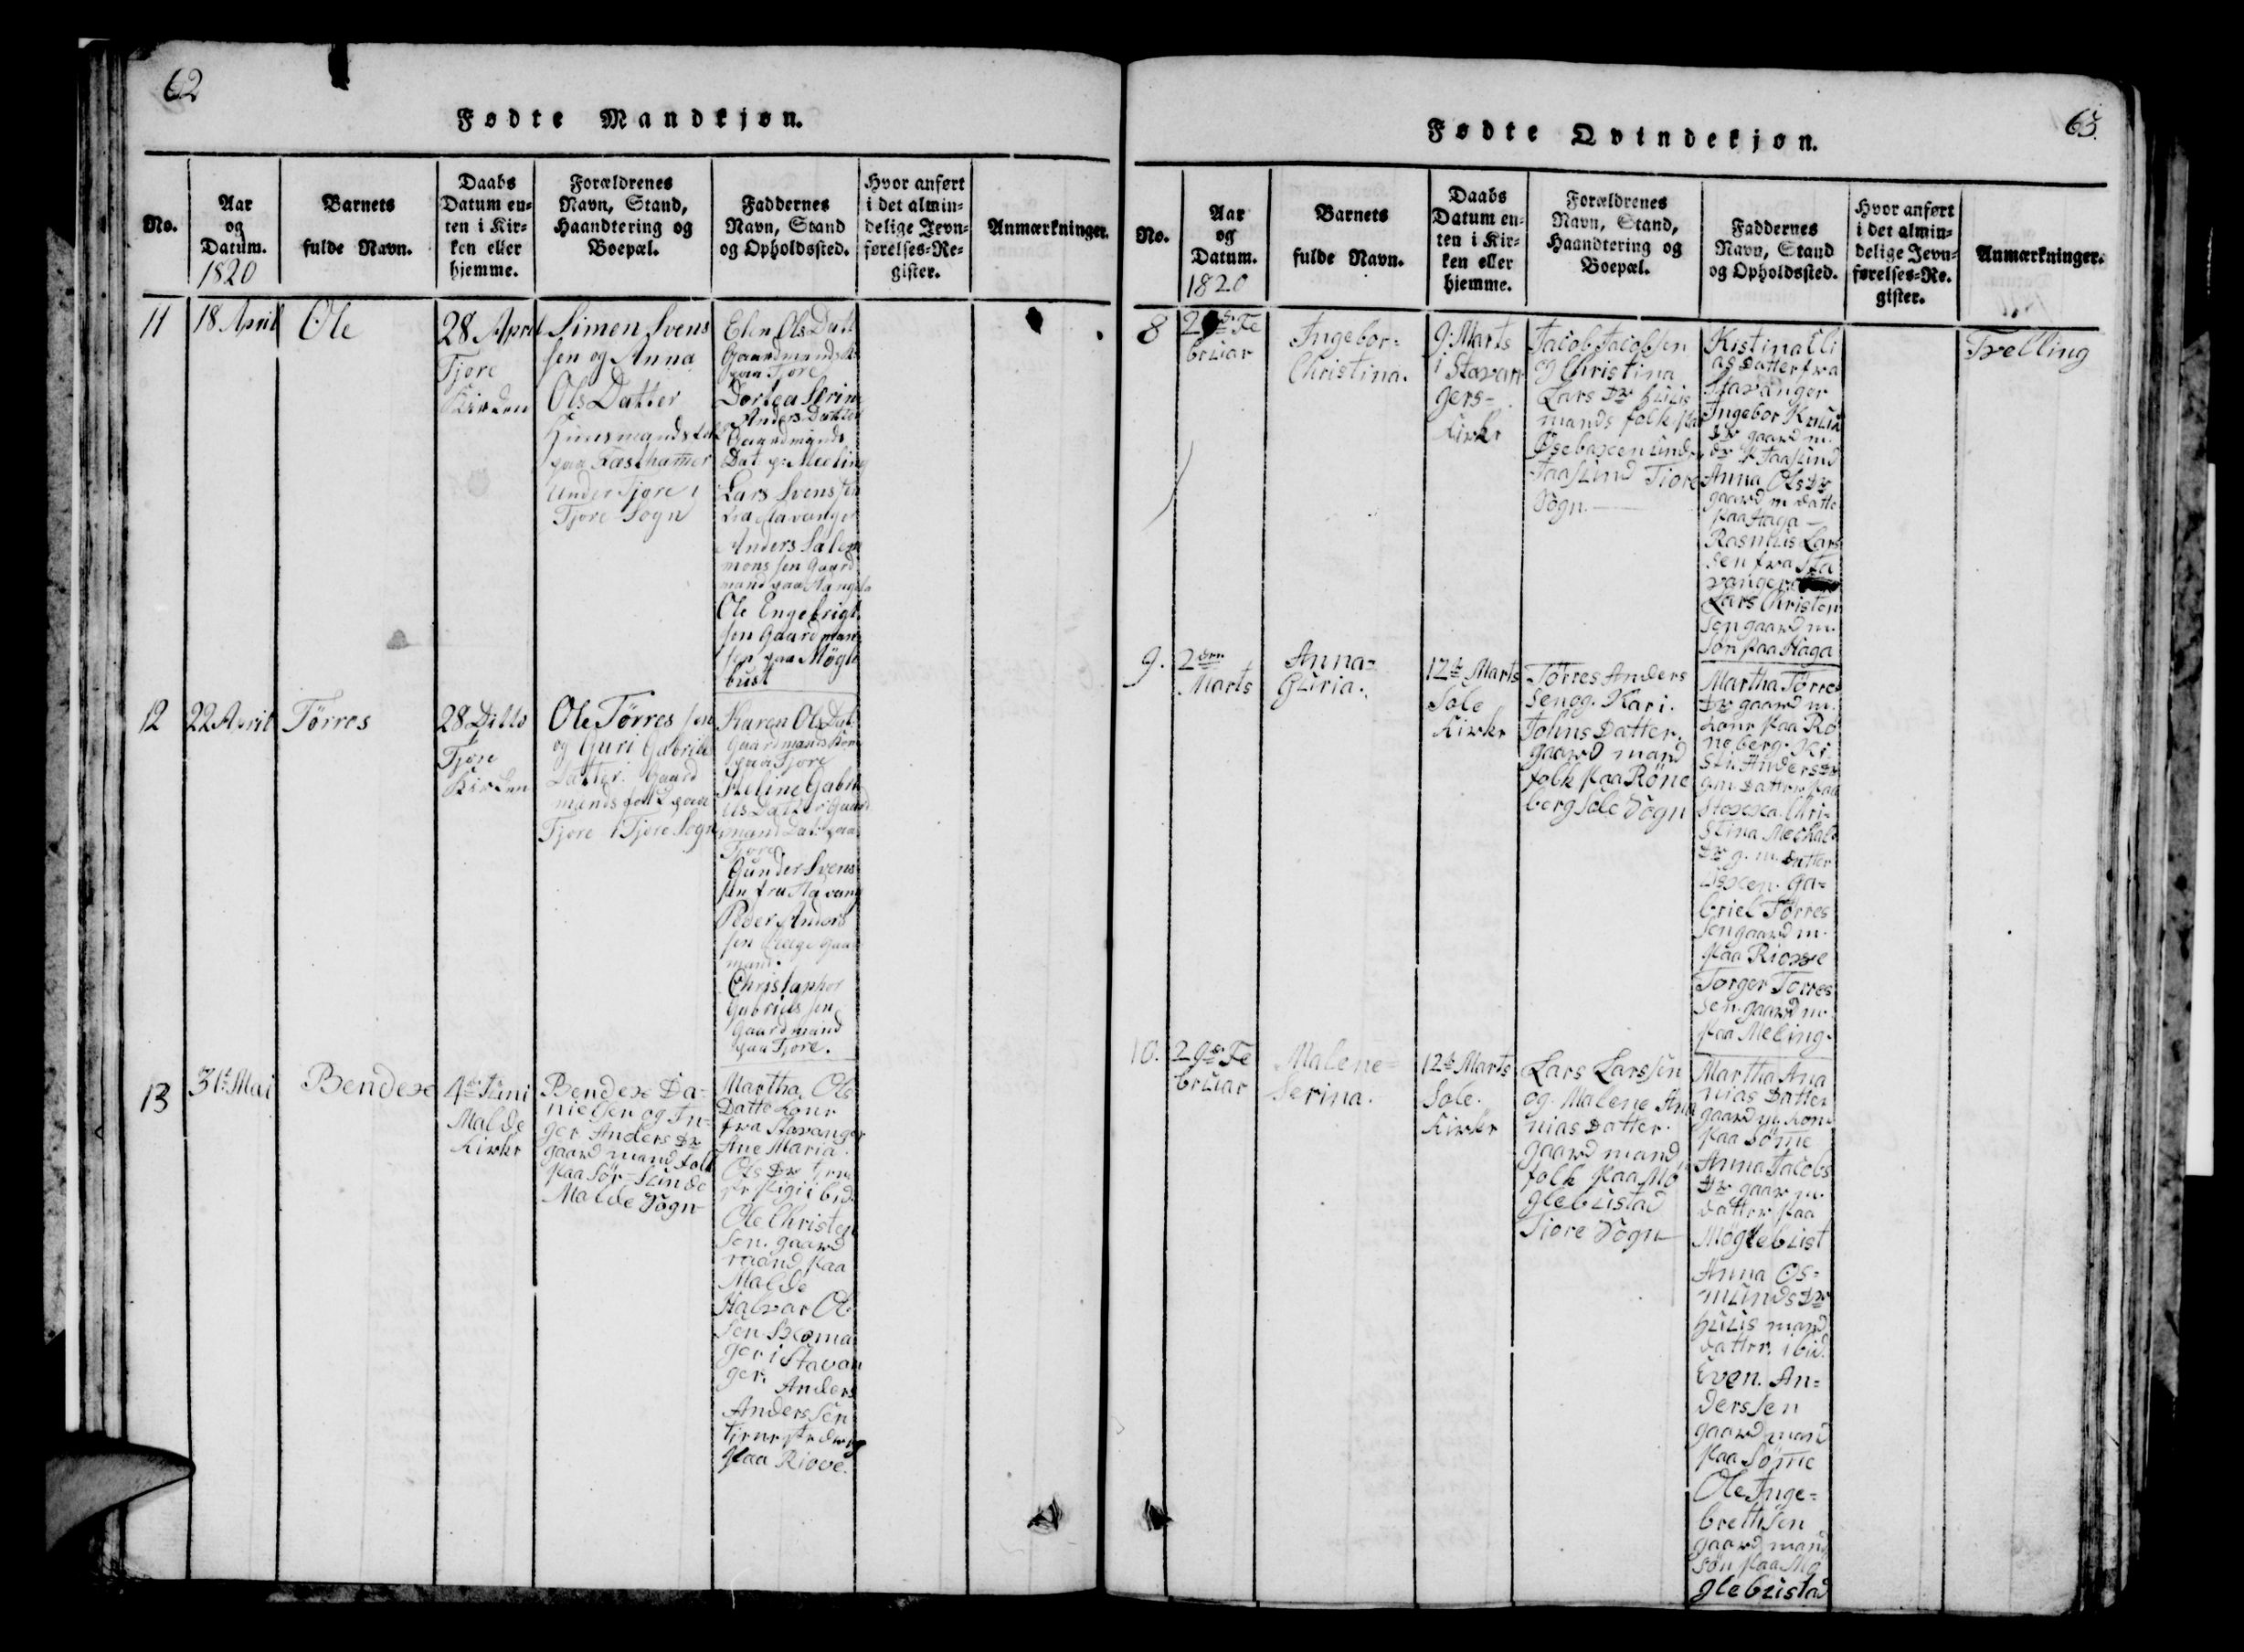 62
Fødte Mandkjøn.
No.
Aar
og
Datum.
1820
Barnets
fulde Navn.
Daabs
Datum en-
ten i Kir-
ken eller
hjemme.
Forældrenes
Navn, Stand,
Haandtering og
Boepæl.
Faddernes
Navn, Stand
og Opholdssted.
Hvor anført
i det almin-
delige Jevn-
førelses-Re-
gister.
Anmærkninger.
11
18 April
Ole
28 April
Tjore
Kirken
Simon Svens
sen og Anna
Ols Datter
Huusmandsfolk
paa
under Tjore i
Tjore Sogn
Elen Ols Datt
Gaardmands
paa Tjore
Dortea Serin
Anders Datter
Gaardmands
Dat. p: Meeling
Lars Svensen
fra Stavanger
Anders Salem
monssen Gaard
mand paa
Ole Engebrigt
sen Gaardman
sen paa Møgle
bust
12
22 April
Törres
28 Ditto
Tjore
Kirken
Ole Törres sen
og Guri Gabriels
Datter. Gaard
mandsfolk paa
Tjore i Tjore Sogn
Karen Ols Dat
Gaardmands Kone
paa Tjore
Steline Gabri
els Datter Gaard
mand Dat: paa
Tjore
Gunder Svens
sen fra Stavang
Peder Anders
sen Gaa
mand.
Christopher
Gabriels sen
Gaardmand
paa Tjore.
13
31te Mai
Bendexe
4de Juni
Malde
Kirke
Bendexe Da-
nielsen og In-
ger Anders Dr
gaard mand folk
paa Sör-Sunde
Malde Sogn
Martha Ols
Datte kone
fra Stavanger
Ane Maria
Ols Dr
pige ibid.
Ole Christen
Sen. gaard
mand paa
Malde
Halvar Ol
sen Skoma
ger i Stavan
ger. Anders
Anders Sen
tieneste dreng
paa Riove.
63.
Fødte Qvindekjøn.
No.
Aar
og
Datum.
1820
Barnets
fulde Navn.
Daabs
Datum en-
ten i Kir-
ken eller
hjemme.
Forældrenes
Navn, Stand,
Haandtering og
Boepæl.
Faddernes
Navn, Stand
og Opholdssted.
Hvor anført
i det almin-
delige Jevn-
førelses-Re-
gister.
Anmærkninger.
8
Fe
bruar
Ingebor-
Christina.
9. Marts
i Stavan
gers-
kirke
Jacob Jacobsen
og Christina
Lars Dr huus
mands folk paa
under
Haaslund Tiore
Sogn.
Kistina Eli
as Datter fra
Stavanger
Ingebor Knud
Dr gaard m.
dr p Haaslund
Anna Ols Dr
gaard m datte
paa Haga
Rasmus Lars
sen fra Sta
vanger.
Lars Christen
sen gaard m.
Søn paa Haga
Tvelling
9.
2den
Marts
Anna-
Guria.
12te Marts
Sole
kirke
Törres Anders
sen og. Kari.
Johns Datter.
gaard mand
folk paa Röne
berg Sole Sogn
Martha Törres
Dr gaard m.
kone paa Rö
neberg. Ki
sti. Anders Dr
g m Datter paa
Stoxexa. Chri-
stina Mechals
Dr g. m. datter
Ga-
briel Törres
sen gaard m.
paa Riove
Torger Torres
sen. gaard m.
paa Meling.
10.
29de Fe
bruar
Malene-
Serina.
12te Marts
Sole.
kirke
Lars Larssen
og. Malene Ana
nias Datter.
gaard mand
folk paa Mö
glebustad
Tiore Sogn
Martha Ana
nias Datter
gaard m. kone
paa Söme
Anna Jacobs
Dr gaar m.
datter paa
Møglebust
Anna Os-
munds Dr
huus mand
datter. ibid.
Even. An-
derssen
gaard mand
paa Söme
Ole Inge-
brethsen
gaard mand
søn paa Mø
glebustad